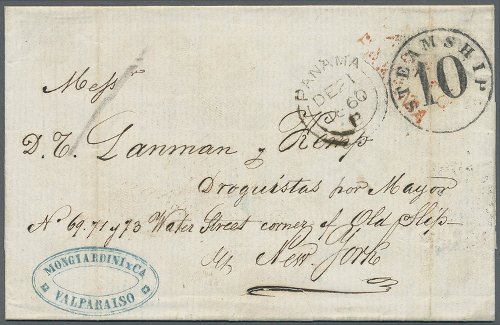 STEAMSHIP
10
PANAMA
DE 21
60
Messrs
D. T. Lanman y Kemp
Droguistas por Mayor
No 69. 71 y 73 Water Street corner of Old Slip
New York
MONGIARDINI Y CA
VALPARAISO